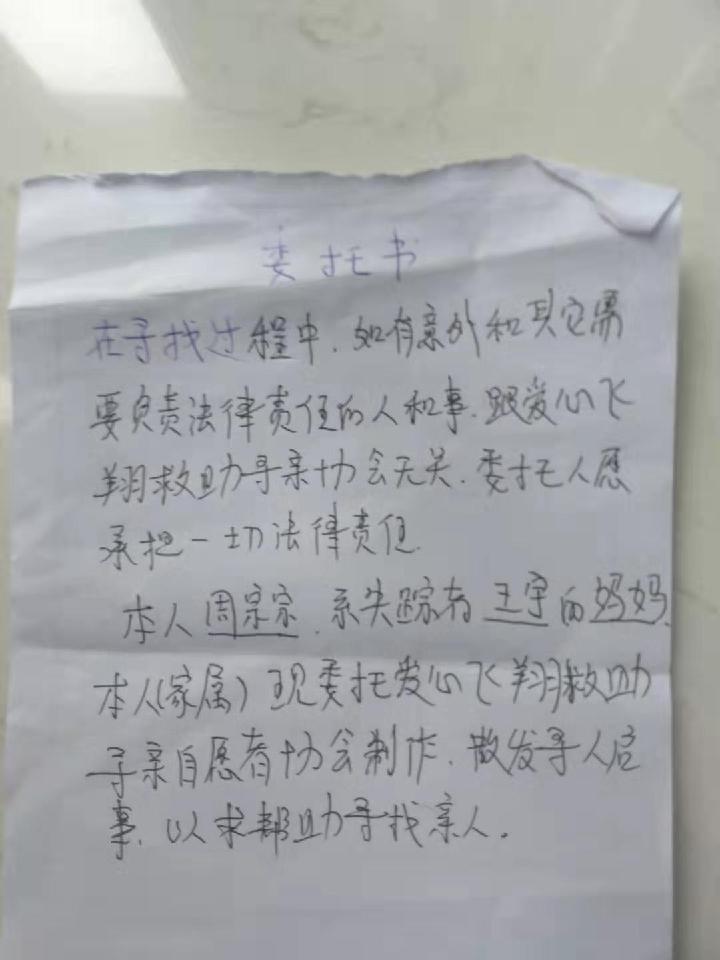 委托书
在寻找过程中．如有意外和其它需
要负责法律责任的人和事．跟爱心飞
翔救助寻亲协会无关．委托人愿
承担一切法律责任．
本人周宗宗．系失踪者王宇的妈妈．
本人(家属)现委托爱心飞翔救助
寻亲自愿者协会制作．散发寻人启
事．以求帮助寻找亲人。